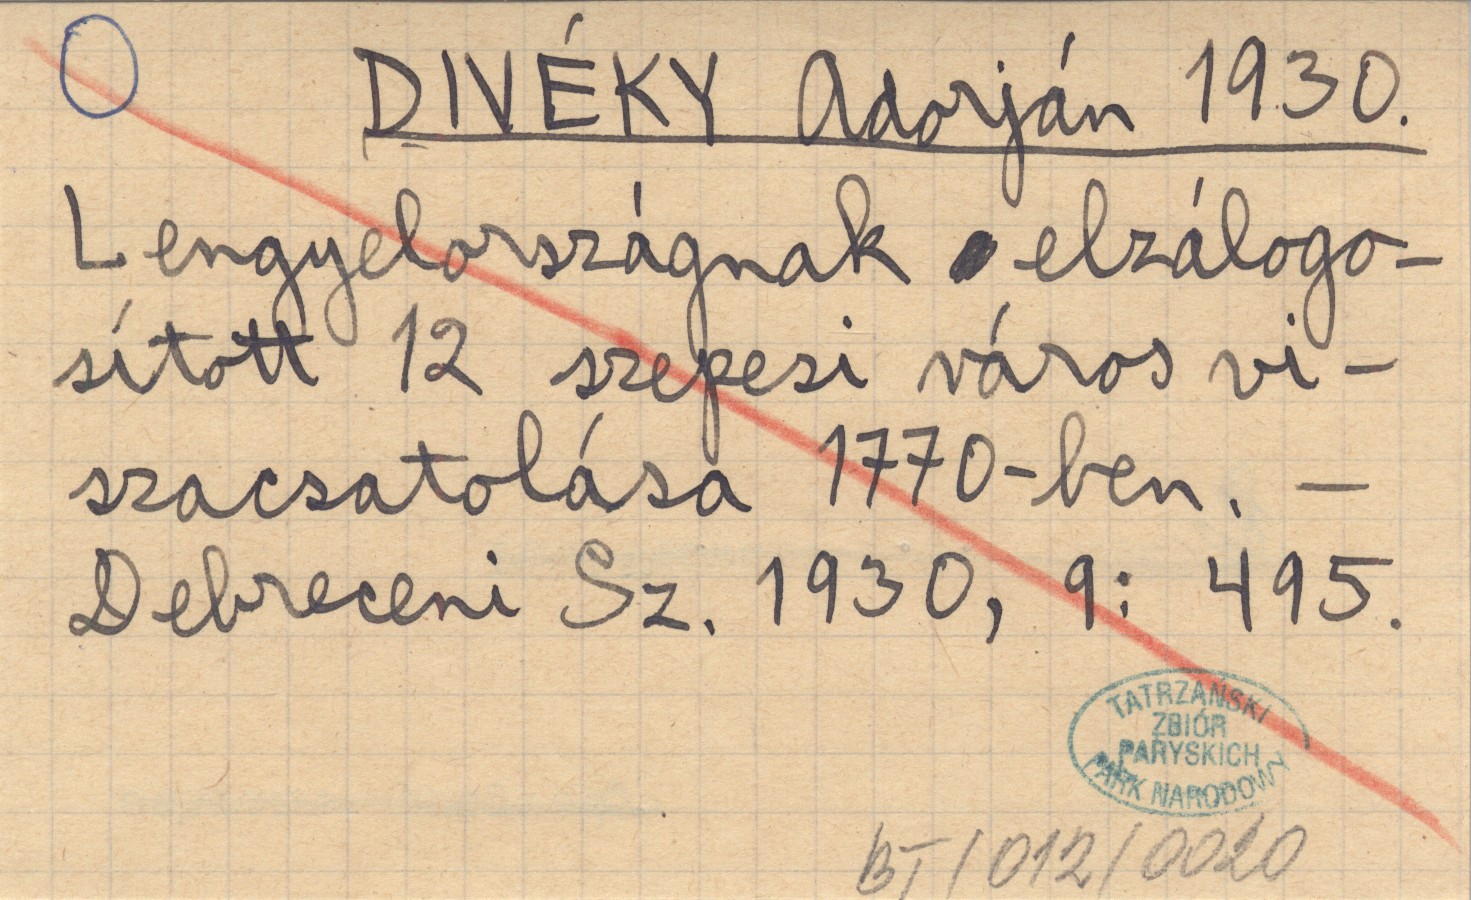 DIVÉKY Adorján 1930.
Lengyelországnak elzálogo-
sított 12 szepesi város vi-
szacsatolása 1770-ben. —
Debreceni Sz. 1930, 9: 495.
TATRZAŃSKI
ZBIÓR
PARYSKICH
PARK NARODOWY
BT/012/0020